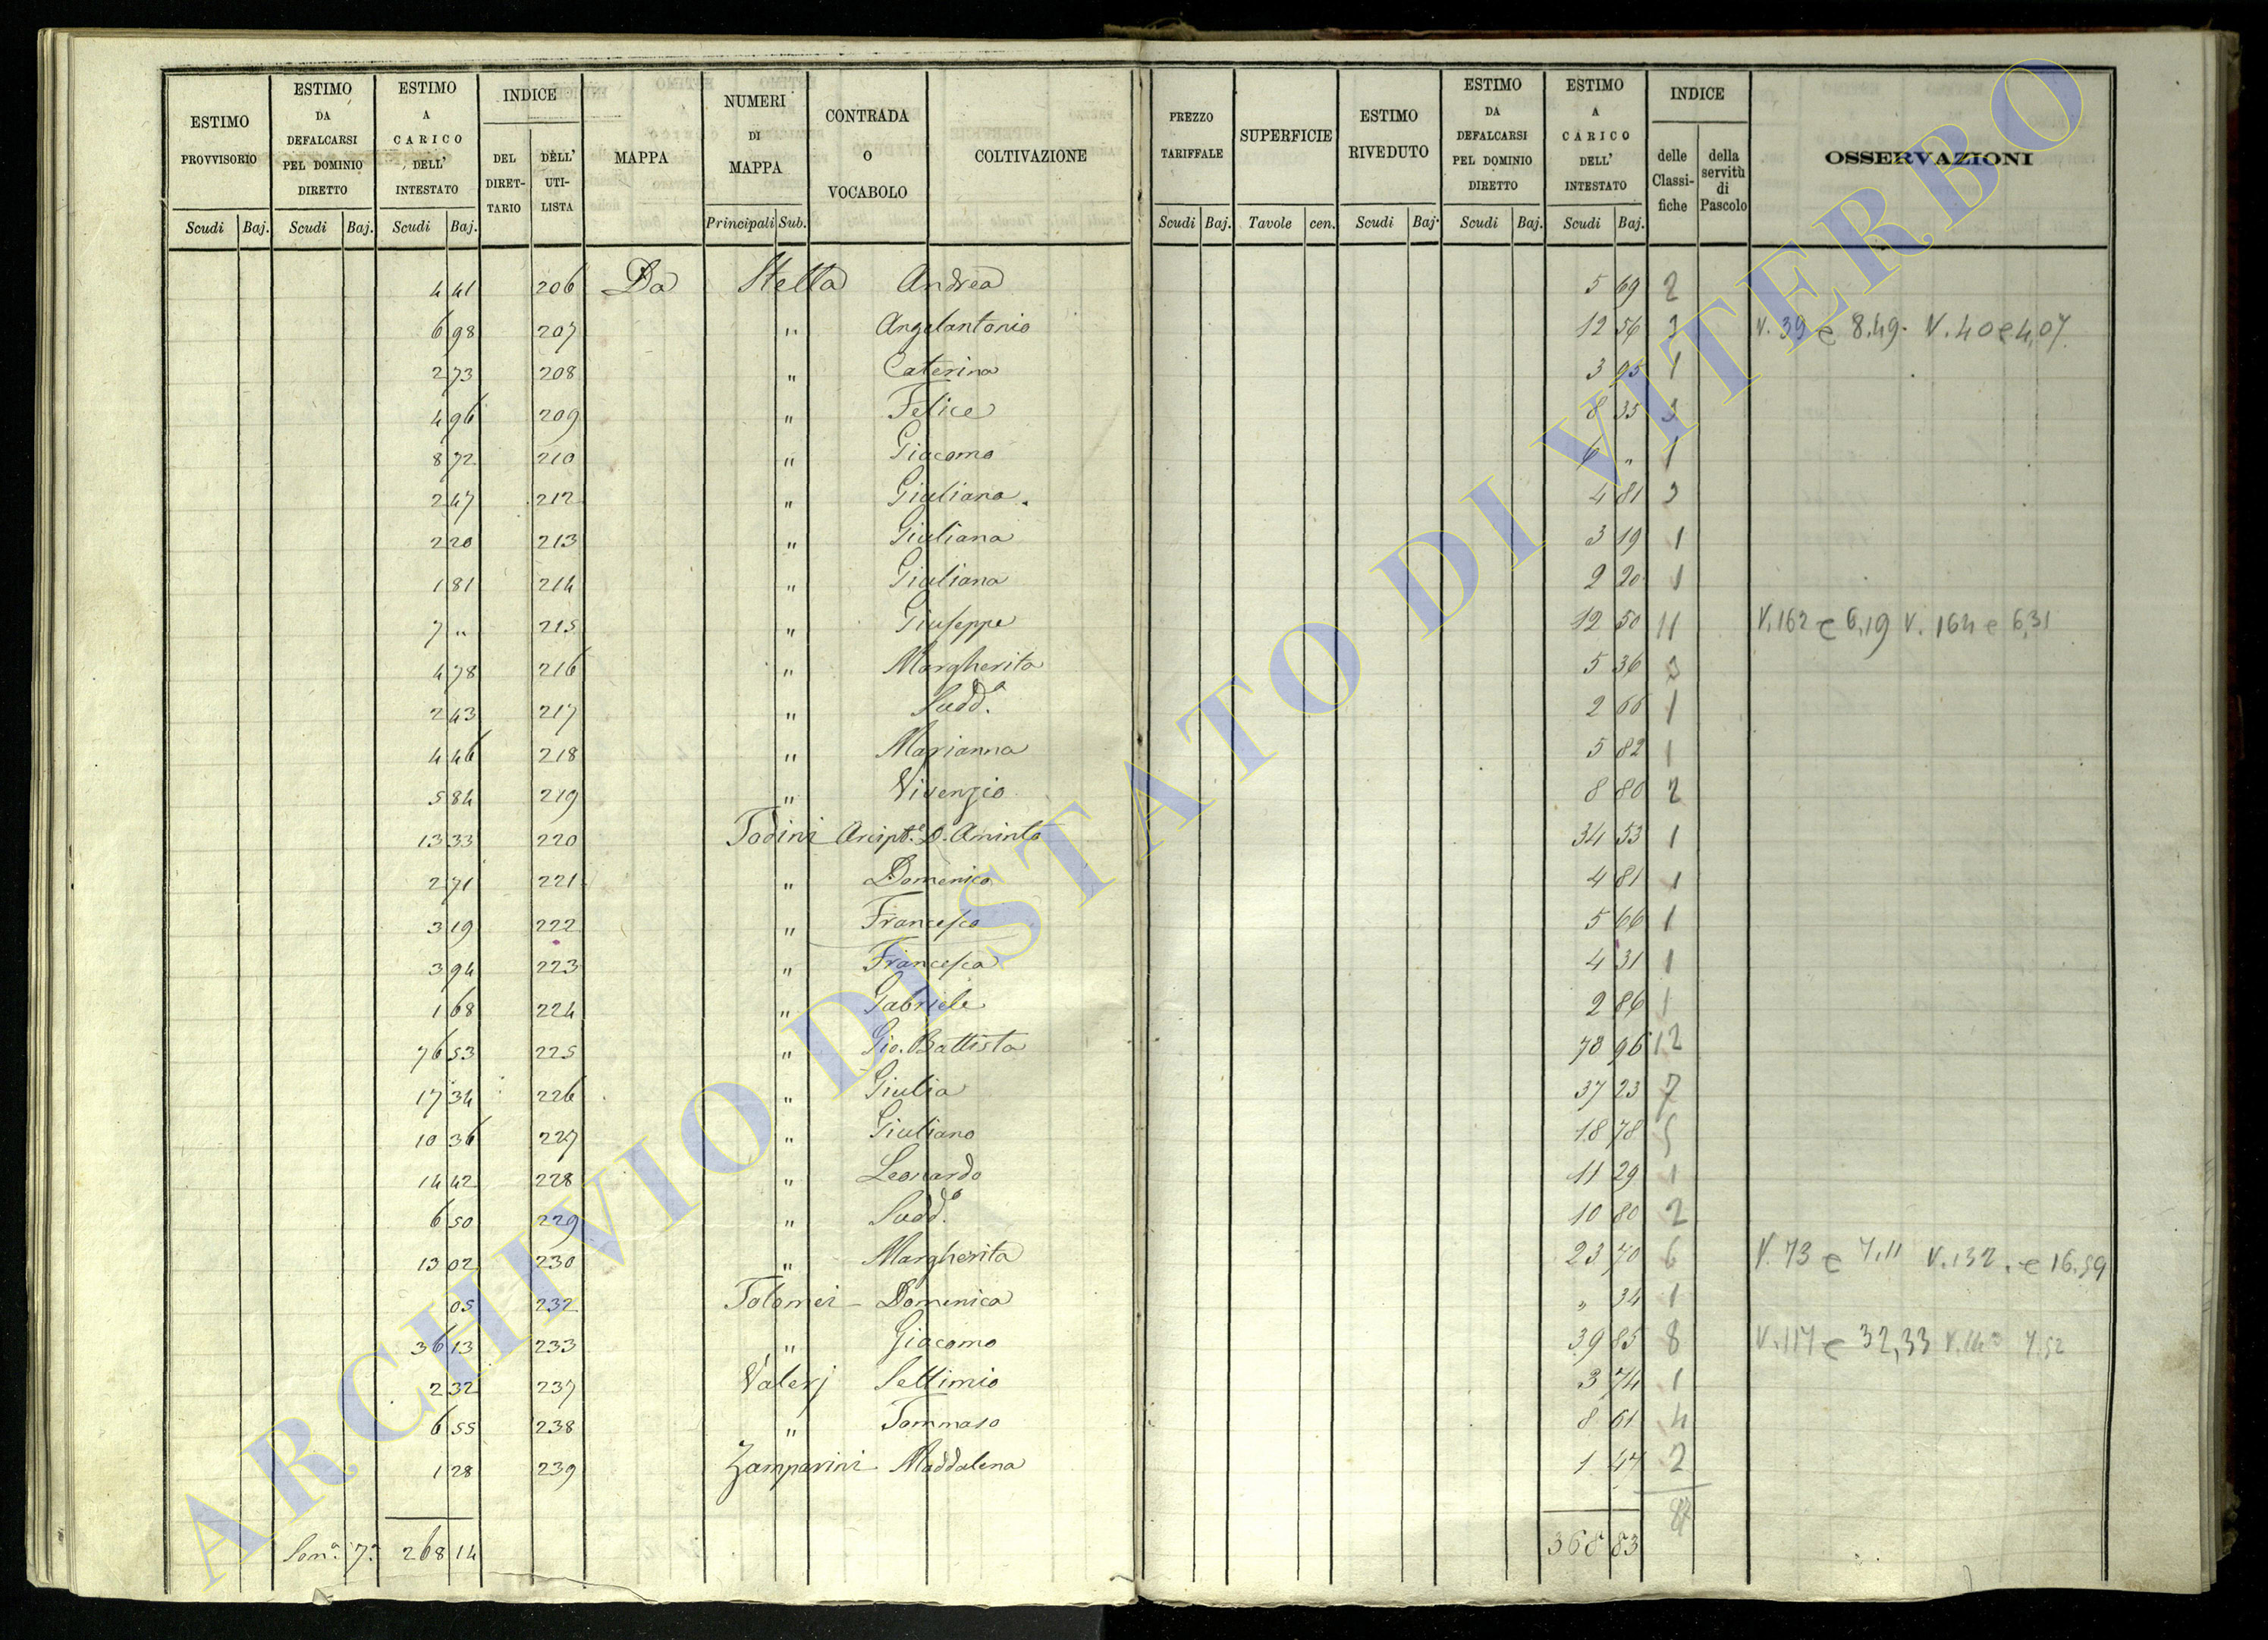 ESTIMO PROVVISORIO | ESTIMO DA DEFALCARSI PEL DOMINIO DIRETTO | ESTIMO A CARICO DELL' INTESTATO | INDICE | MAPPA | NUMERI DI MAPPA | CONTRADA O VOCABOLO | COLTIVAZIONE | PREZZO TARIFFALE | SUPERFICIE | ESTIMO RIVEDUTO | ESTIMO DA DEFALCARSI PEL DOMINIO DIRETTO | ESTIMO A CARICO DELL' INTESTATO | INDICE | OSSERVAZIONI
DEL DIRETTARIO | DELL' UTILISTA | delle Classifiche | della servitù di Pascolo
Scudi Baj. | Scudi Baj. | Scudi Baj. | Principali Sub. | Scudi Baj. | Tavole cen. | Scudi Baj. | Scudi Baj. | Scudi Baj.
4 41 206 Da Stella Andrea 5 69 2
6 98 207 " Angelantonio 12 56 3 V. 39 e 8.49. V. 40 e 4,07.
2 73 208 " Caterina 3 95 1
4 96 209 " Felice 8 35 3
8 72 210 " Giacomo 6 " 1
2 47 212 " Giuliana 4 81 3
2 20 213 " Giuliana 3 19 1
1 81 214 " Giuliana 2 20 1
7 " 215 " Giuseppe 12 50 11 V. 162 e 6,19 V. 164 e 6,31
4 78 216 " Margherita 5 36 3
2 43 217 " Sudd.ª 2 66 1
4 46 218 " Marianna 5 82 1
5 84 219 " Vivenzio 8 80 2
13 33 220 Todini Arcipt.e D. Aminto 34 53 1
2 71 221 " Domenico 4 81 1
3 19 222 " Francesco 5 66 1
3 94 223 " Francesca 4 31 1
1 68 224 " Gabriele 2 86 1
76 53 225 " Gio. Battista 78 96 12
17 34 226 " Giulia 37 23 7
10 36 227 " Giuliano 18 78 5
14 42 228 " Leonardo 11 29 1
6 50 229 " Sudd.º 10 80 2
13 02 230 " Margherita 23 70 6 V. 73 e 7,11 V. 132. e 16.59
05 232 Tolomei - Domenica " 34 1
36 13 233 " Giacomo 39 85 8 V. 117 e 32,33 7.52
2 32 237 Valerj Settimio 3 74 1
6 55 238 " Tommaso 8 61 4
1 28 239 Zamparini Maddalena 1 47 2
Som.ª 7.ª 268 14 368 83
ARCHIVIO DI STATO DI VITERBO